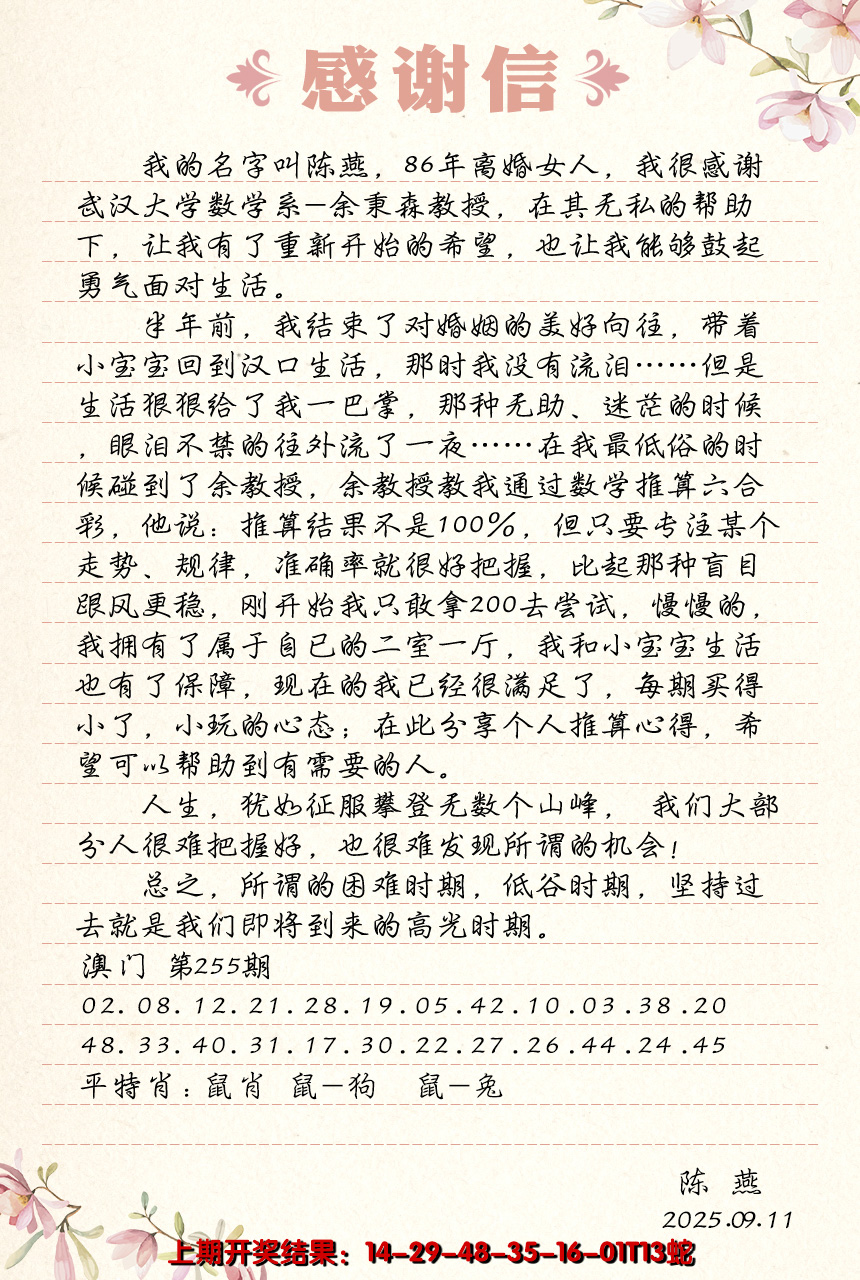 感谢信
我的名字叫陈燕，86年离婚女人，我很感谢
武汉大学数学系—余秉森教授，在其无私的帮助
下，让我有了重新开始的希望，也让我能够鼓起
勇气面对生活。
半年前，我结束了对婚姻的美好向往，带着
小宝宝回到汉口生活，那时我没有流泪……但是
生活狠狠给了我一巴掌，那种无助、迷茫的时候
，眼泪不禁的往外流了一夜……在我最低俗的时
候碰到了余教授，余教授教我通过数学推算六合
彩，他说：推算结果不是100%，但只要专注某个
走势、规律，准确率就很好把握，比起那种盲目
跟风更稳，刚开始我只敢拿200去尝试，慢慢的，
我拥有了属于自已的二室一厅，我和小宝宝生活
也有了保障，现在的我已经很满足了，每期买得
小了，小玩的心态；在此分享个人推算心得，希
望可以帮助到有需要的人。
人生，犹如征服攀登无数个山峰， 我们大部
分人很难把握好，也很难发现所谓的机会！
总之，所谓的困难时期，低谷时期，坚持过
去就是我们即将到来的高光时期。
澳门 第255期
02.08.12.21.28.19.05.42.10.03.38.20
48.33.40.31.17.30.22.27.26.44.24.45
平特肖：鼠肖 鼠—狗 鼠—兔
陈 燕
2025.09.11
上期开奖结果：14-29-48-35-16-01T13蛇